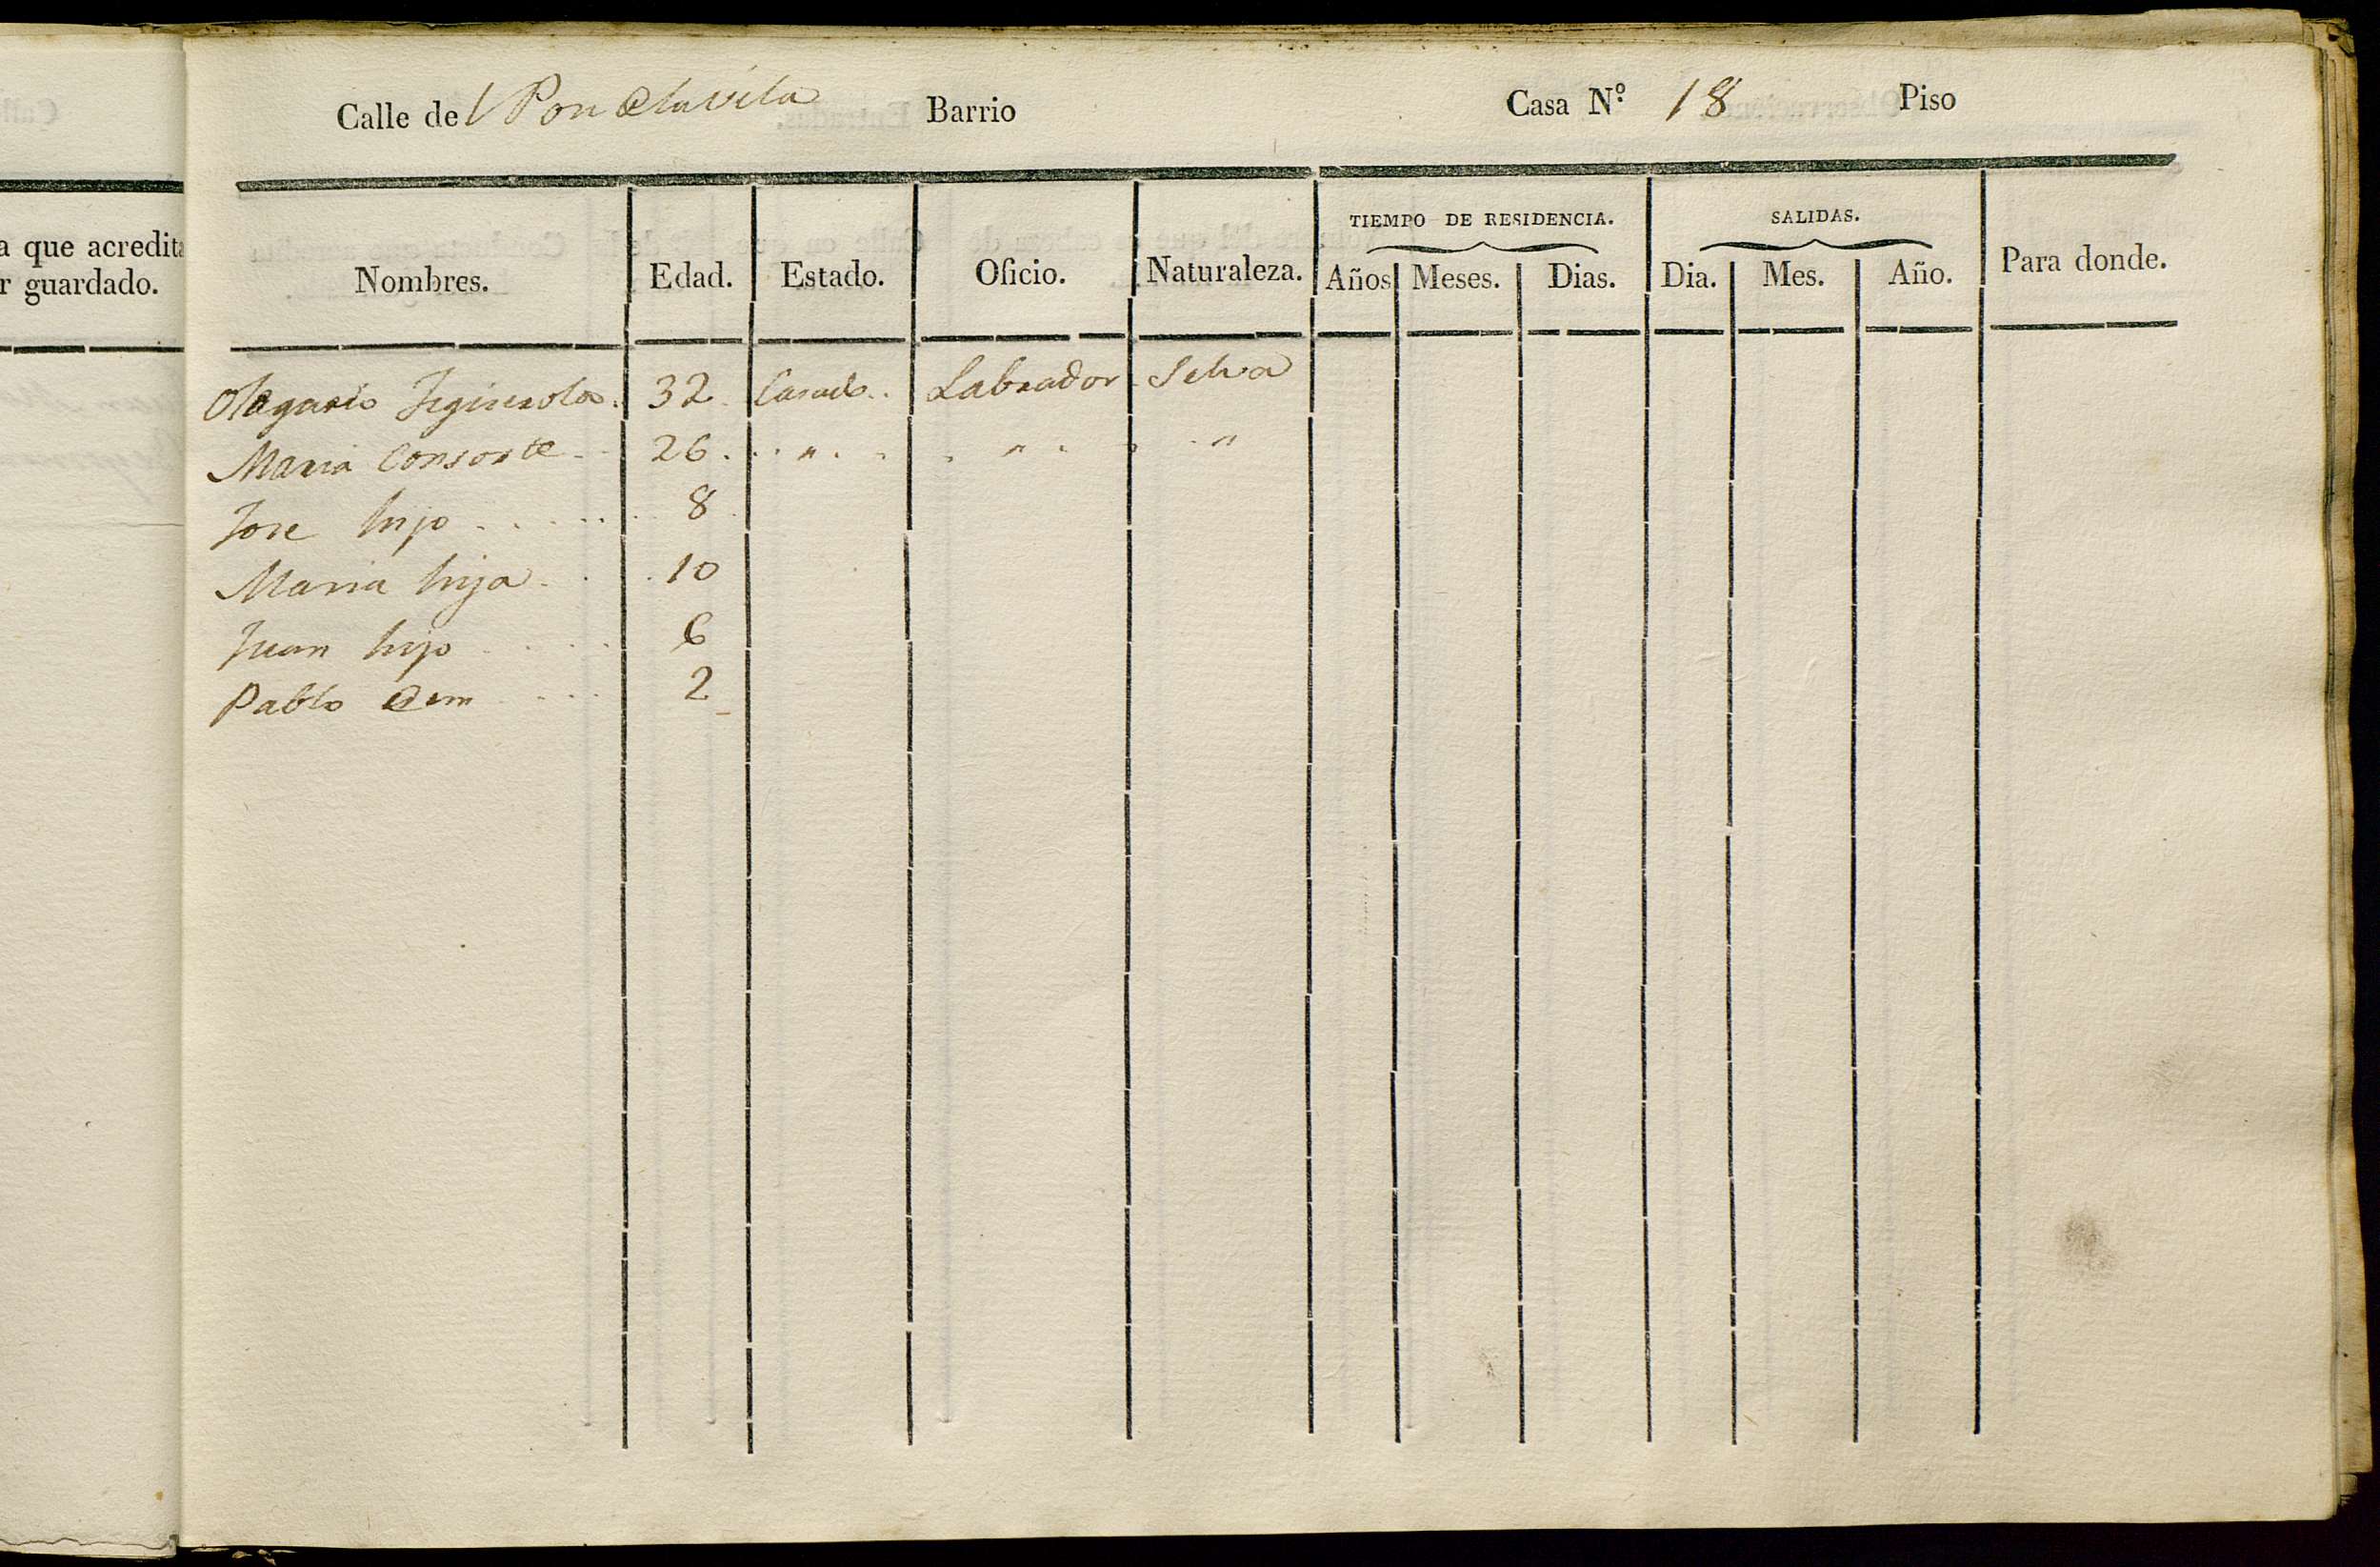 a que acredita
r guardado.
Calle del Pon de la vila Barrio Casa N.º 18 Piso
Nombres. Edad. Estado. Oficio. Naturaleza. TIEMPO DE RESIDENCIA. Años Meses. Dias. SALIDAS. Dia. Mes. Año. Para donde.
Olagario 32 Casado.. Labrador Selva
Maria Consorte 26. " " "
Jose hijo 8
Maria hija 10
Juan hijo 6
Pablo Dem 2